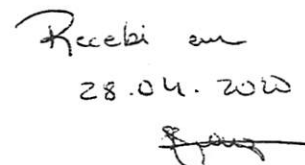 Recebi em
28.04.2020